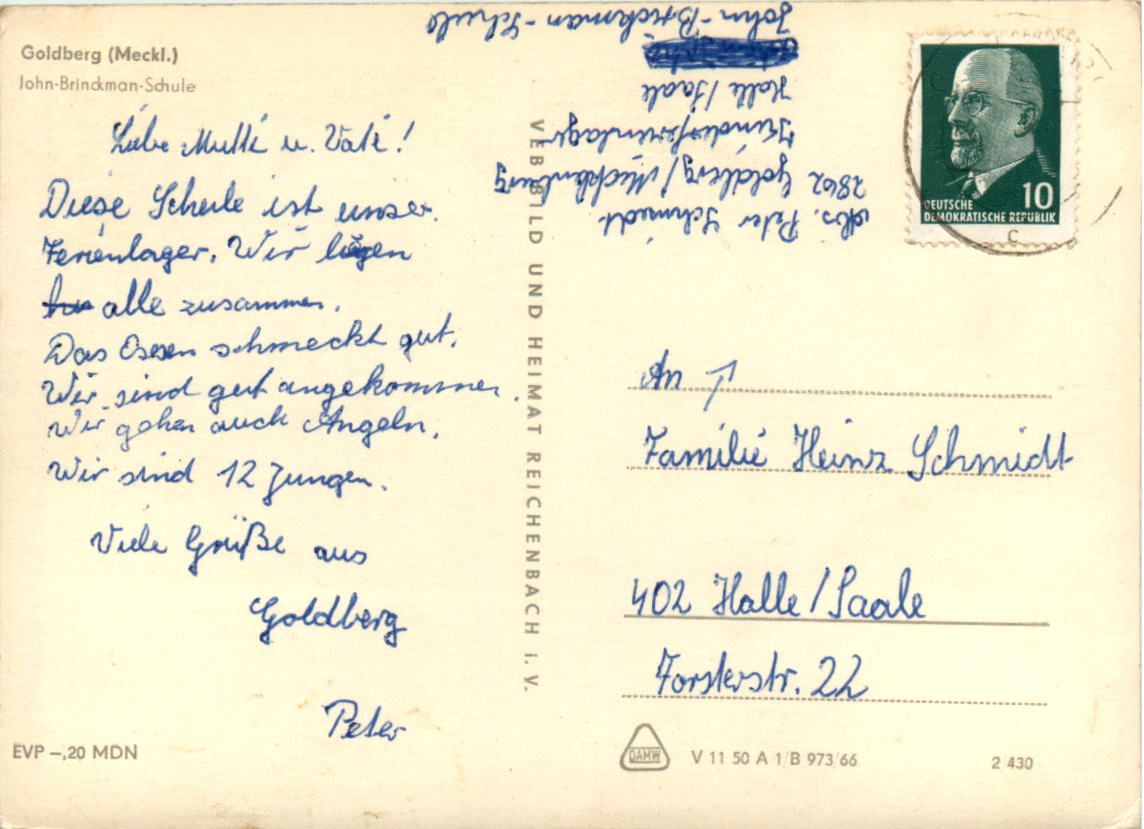 Goldberg (Meckl.)
John-Brinckman-Schule
Liebe Mutti u. Vati!
Diese Schule ist unser
Ferienlager. Wir liegen
alle zusammen.
Das Essen schmeckt gut.
Wir sind gut angekommen.
Wir gehen auch Angeln.
Wir sind 12 Jungen.
Viele Grüße aus
Goldberg
Peter
EVP –,20 MDN
VEB BILD UND HEIMAT REICHENBACH i. V.
Abs. Peter Schmidt
2862 Goldberg/Mecklenburg
Kinderferienlager
Halle/Saale
John-Brickman-Schule
10
DEUTSCHE
DEMOKRATISCHE REPUBLIK
C
An
Familie Heinz Schmidt
402 Halle/Saale
Forsterstr. 22
DAMW
V 11 50 A 1/B 973/66
2 430